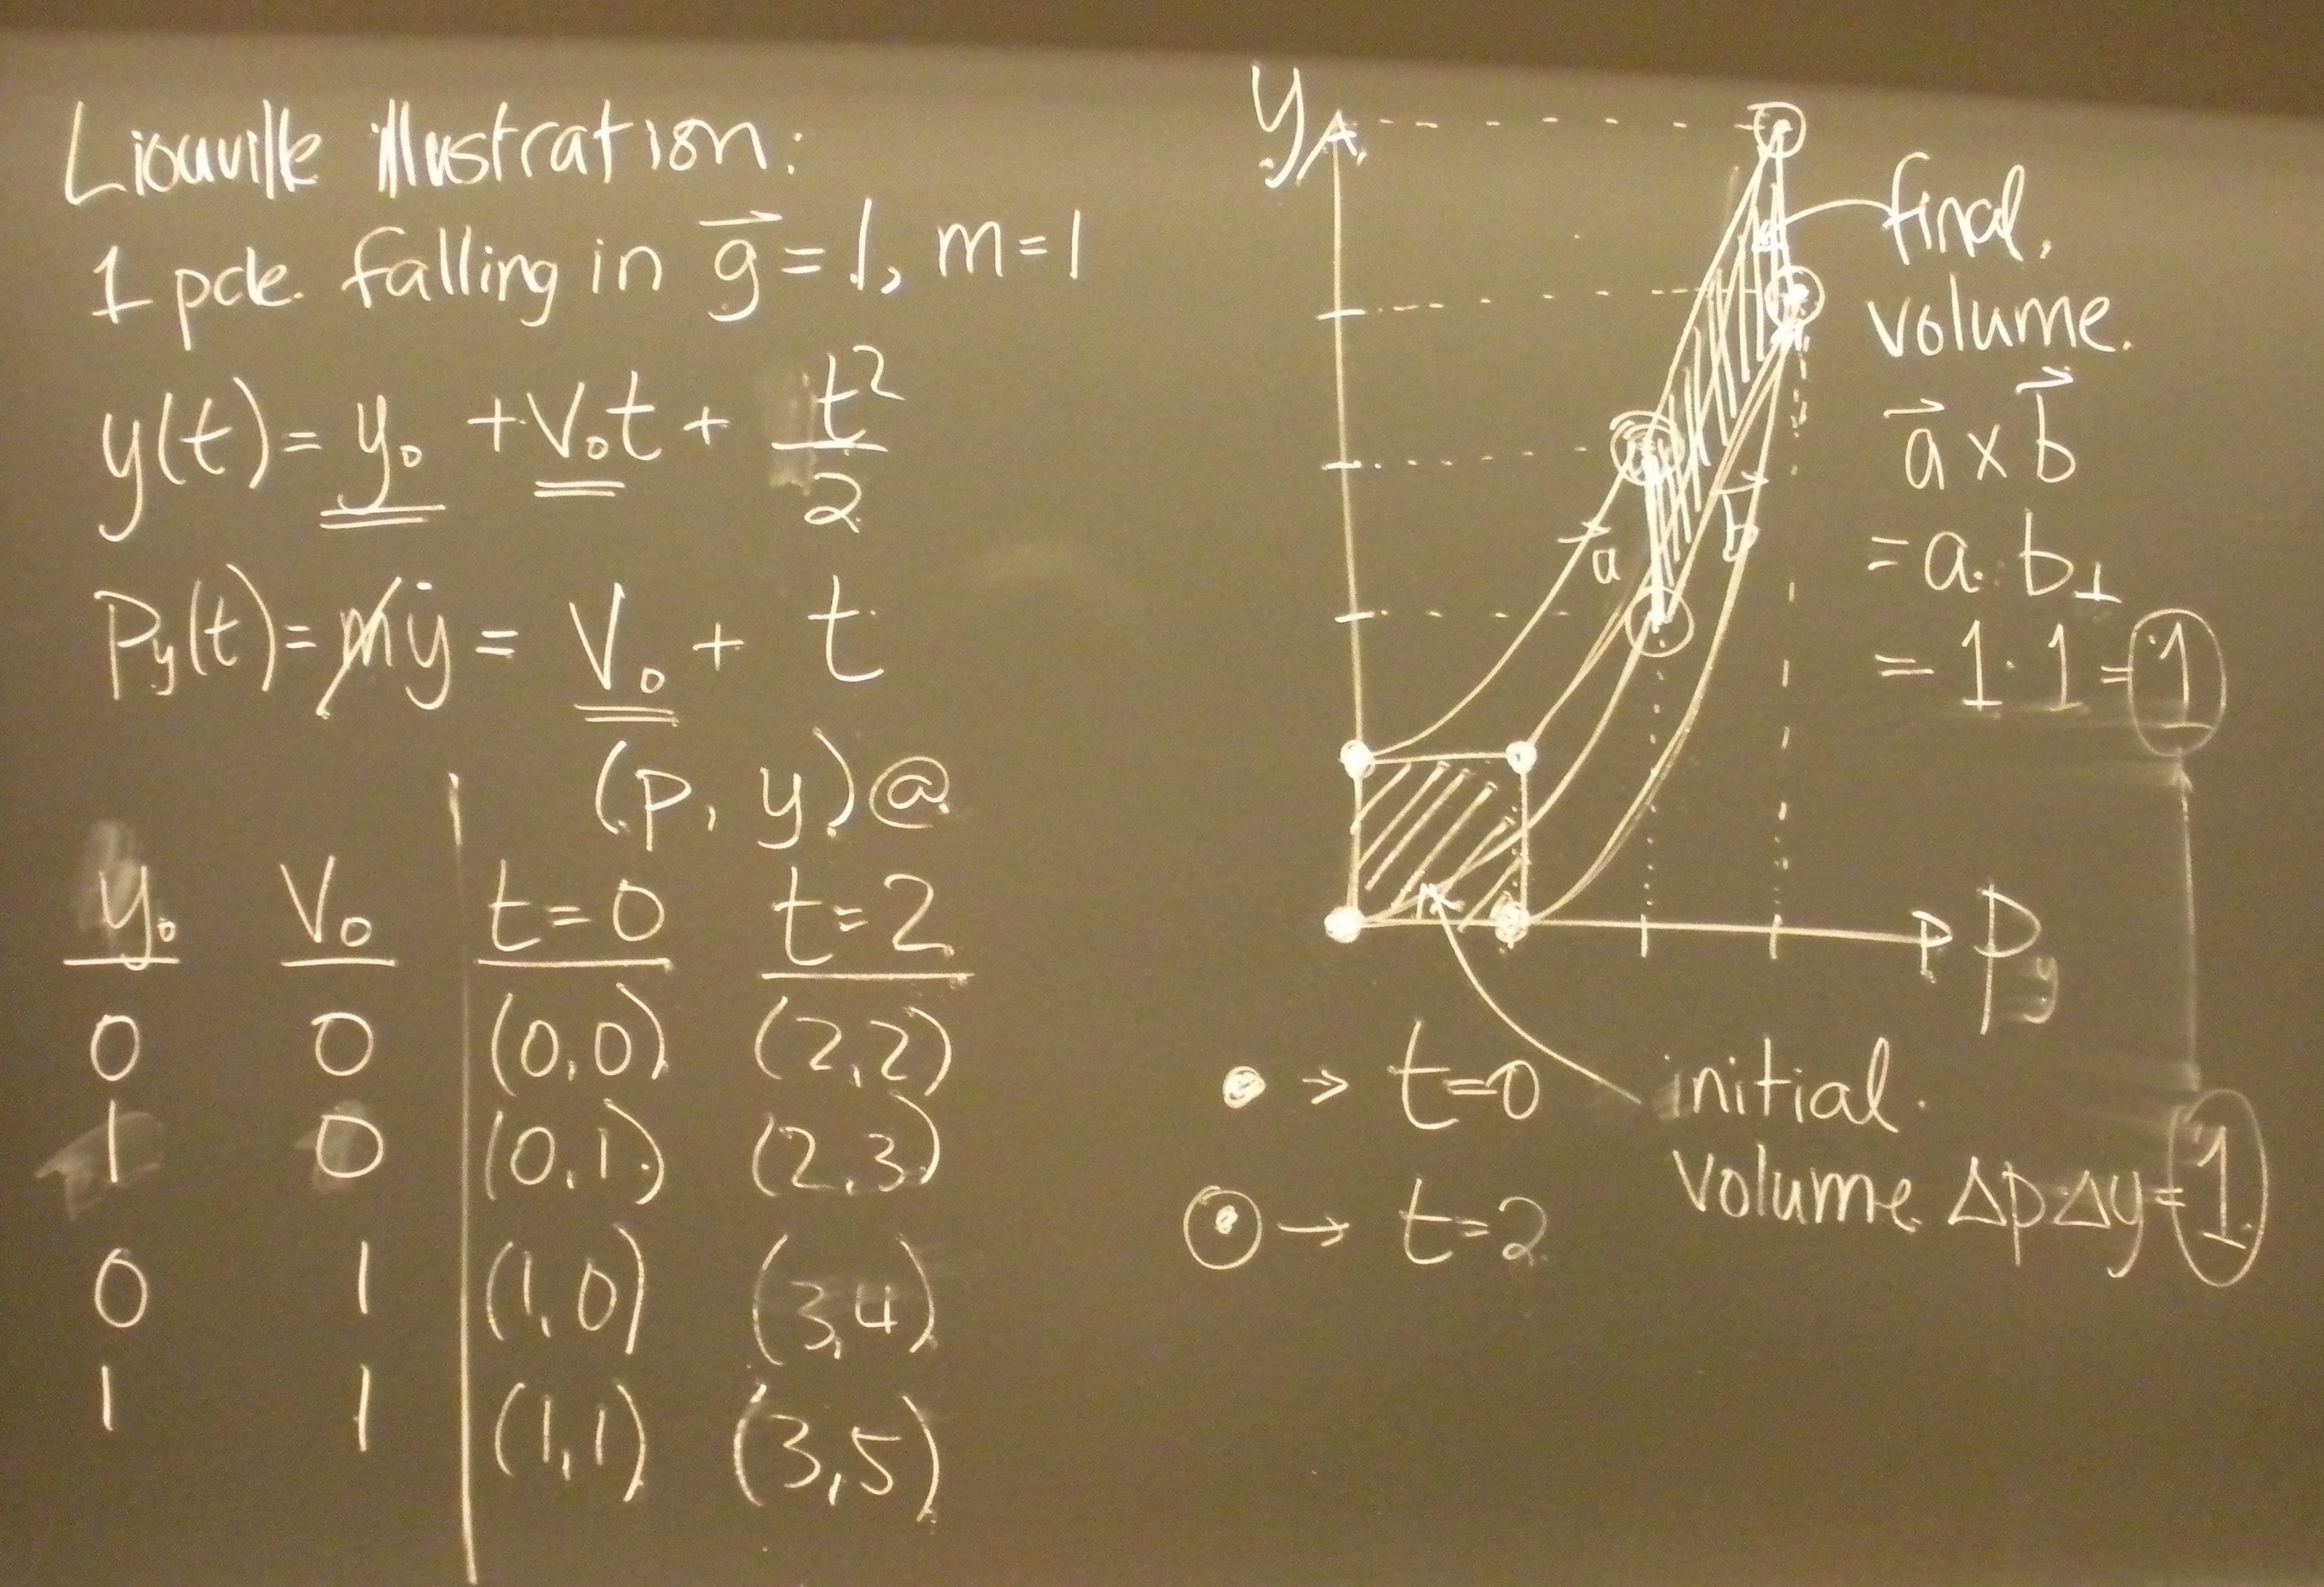 Liouville illustration:
1 pcle. falling in g⃗ = 1, m = 1
y(t) = y₀ + v₀t + t²/2
Py(t) = mẏ = v₀ + t
(p, y) @
y₀ v₀ t=0 t=2
0 0 (0,0) (2,2)
1 0 (0,1) (2,3)
0 1 (1,0) (3,4)
1 1 (1,1) (3,5)
y
a⃗
b⃗
Py
final
volume.
a⃗ × b⃗
= a · b⊥
= 1 · 1 = 1
• → t=0
⊙ → t=2
initial
volume ΔpΔy = 1